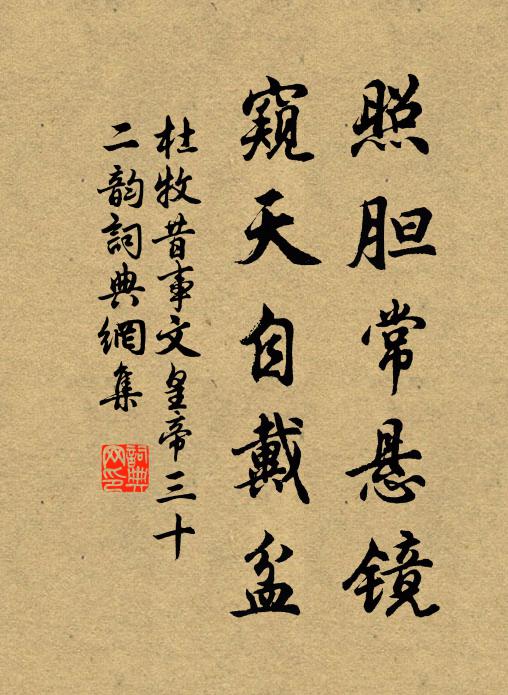 照胆常悬镜
窥天自戴盆
杜牧昔事文皇帝三十
二韵詞典網集
詞典网印